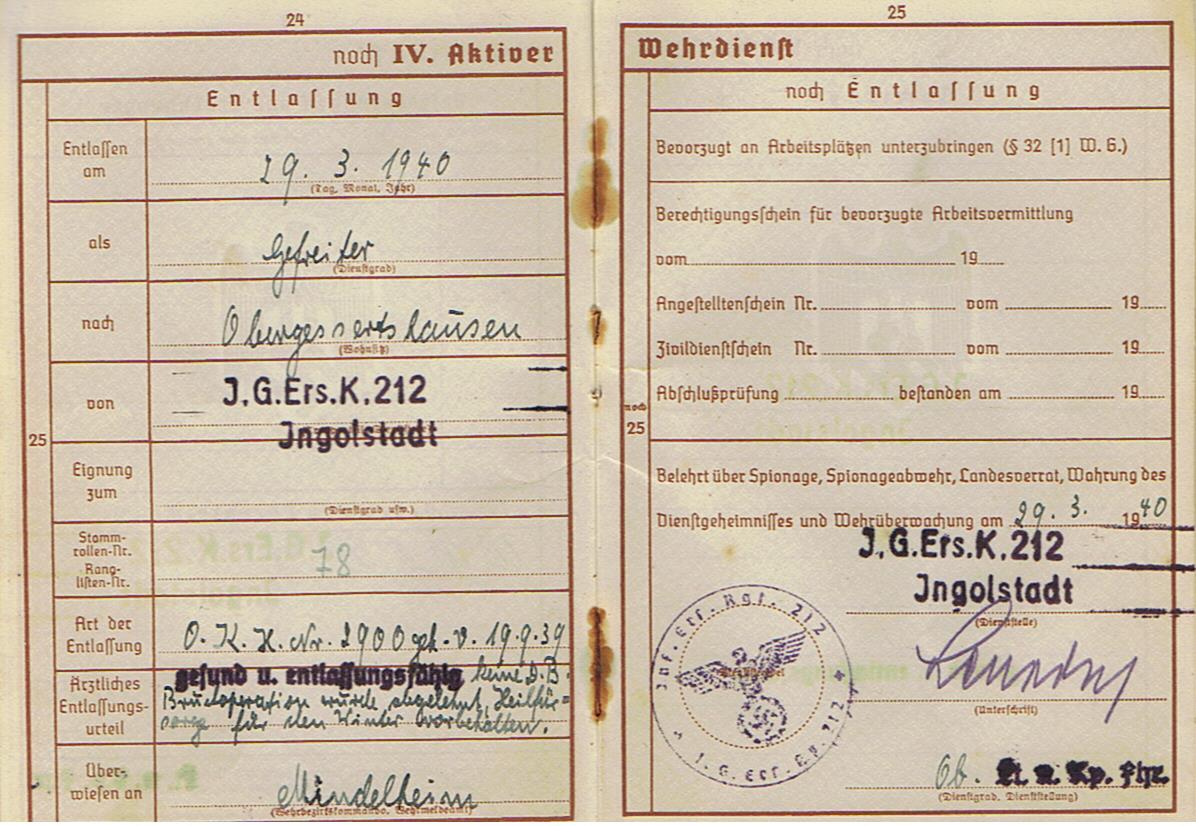 24
noch IV. Aktiver
Entlassung
Entlassen am
29. 3. 1940
(Tag, Monat, Jahr)
als
Gefreiter
(Dienstgrad)
nach
Obergessertshausen
(Wohnsitz)
von
J.G.Ers.K.212
Jngolstadt
25
Eignung zum
(Dienstgrad usw.)
Stamm-
rollen-Nr.
Rang-
listen-Nr.
78
Art der
Entlassung
O. K. H. Nr. 2900 geh. v. 19.9.39
Ärztliches
Entlassungs-
urteil
gesund u. entlassungsfähig keine D.B.
Bruchoperation wurde abgelehnt, Heilfür=
sorge für den Winter vorbehalten.
Über-
wiesen an
Mindelheim
(Wehrbezirkskommando, Wehrmeldeamt)
25
Wehrdienst
noch Entlassung
Bevorzugt an Arbeitsplätzen unterzubringen (§ 32 [1] W. G.)
Berechtigungsschein für bevorzugte Arbeitsvermittlung
vom 19
Angestelltenschein Nr. vom 19
Zivildienstschein Nr. vom 19
Abschlußprüfung bestanden am 19
noch
25
Belehrt über Spionage, Spionageabwehr, Landesverrat, Wahrung des
Dienstgeheimnisses und Wehrüberwachung am 29. 3. 1940
J.G.Ers.K.212
Jngolstadt
(Dienststelle)
Inf. Ers. Rgt. 212
(Unterschrift)
Ob. Lt. u. Kp. Fhr.
(Dienstgrad, Dienststellung)